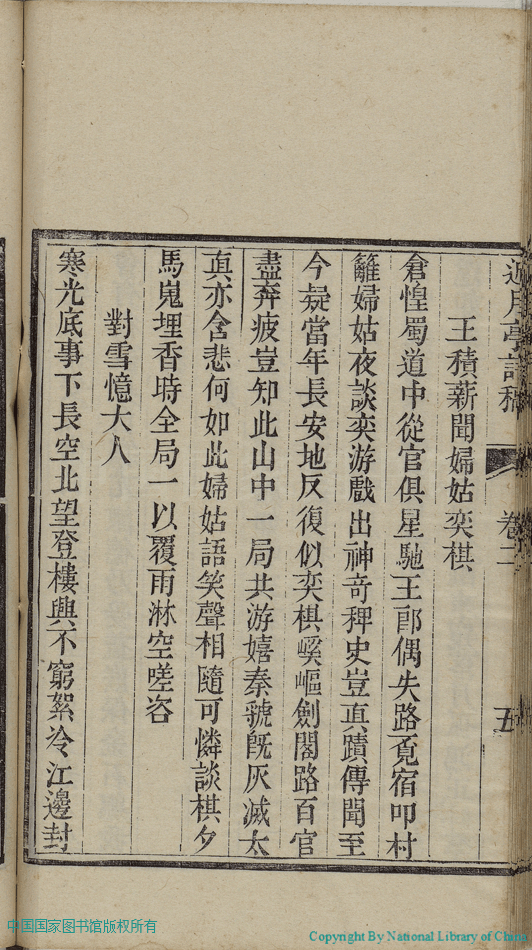 近月亭詩稿 卷二 五
王積薪聞婦姑奕棋
倉惶蜀道中從官俱星馳王郎偶失路覓宿叩村
籬婦姑夜談奕游戲出神奇稗史豈真蹟傳聞至
今疑當年長安地反復似奕棋嶮嶇劍閣路百官
盡奔疲豈知此山中一局共游嬉秦虢既灰滅太
真亦含悲何如此婦姑語笑聲相隨可憐談棋夕
馬嵬埋香時全局一以覆雨淋空嗟咨
對雪憶大人
寒光底事下長空北望登樓興不窮絮冷江邊封
中国国家图书馆版权所有
Copyright By National Library of China